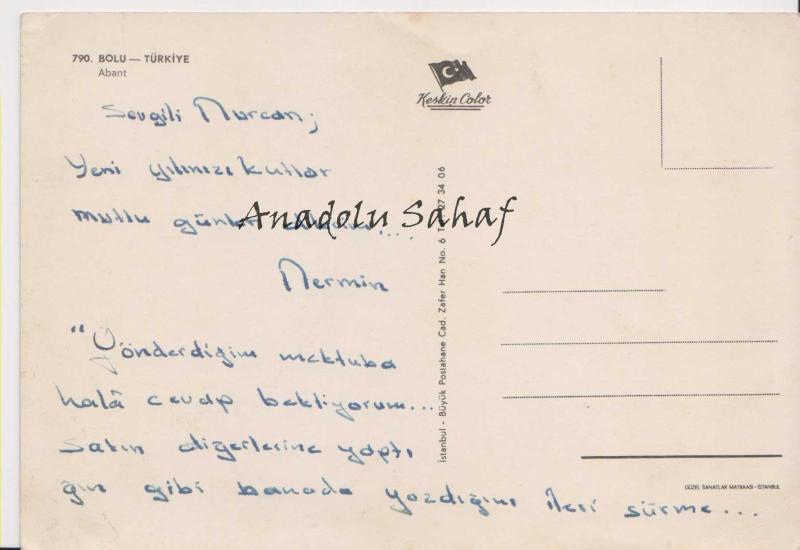 790. BOLU — TÜRKİYE
Abant
Keskin Color
Sevgili Nurcan;
Yeni yılınızı kutlar
mutlu günler dilerim....
Anadolu Sahaf
Nermin
"Gönderdiğim mektuba
halâ cevap bekliyorum...
Sakın diğerlerine yaptı
ğın gibi banada yazdığını ileri sürme...
İstanbul - Büyük Postahane Cad. Zafer Han No. 6 27 34 06
GÜZEL SANATLAR MATBAASI - İSTANBUL